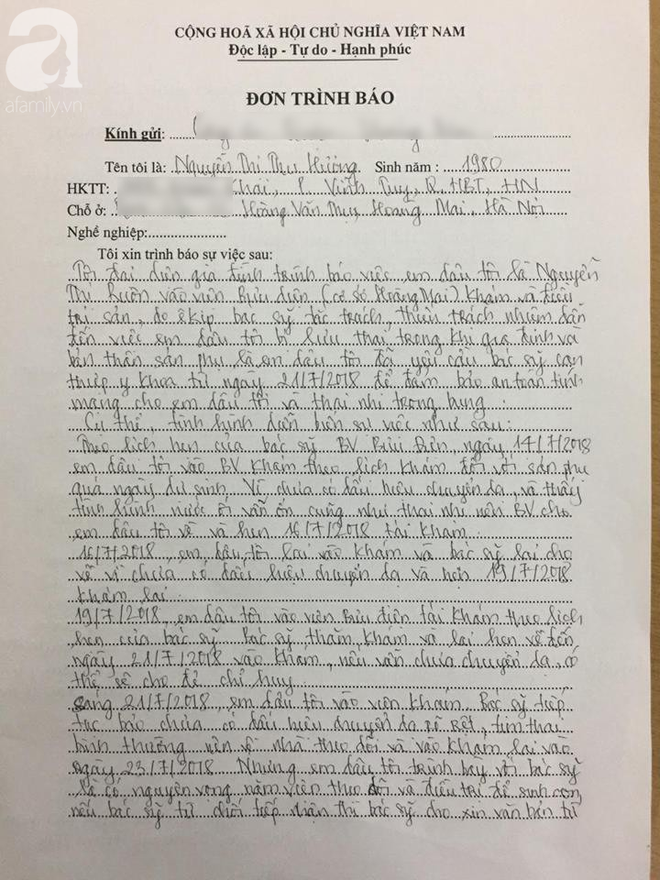 a
afamily.vn
CỘNG HOÀ XÃ HỘI CHỦ NGHĨA VIỆT NAM
Độc lập - Tự do - Hạnh phúc
ĐƠN TRÌNH BÁO
Kính gửi:
Tên tôi là: Nguyễn Thị Thu Hường. Sinh năm : 1980
HKTT: Khái, P. Vĩnh Tuy, Q. HBT, HN
Chỗ ở: Hoàng Văn Thụ, Hoàng Mai, Hà Nội
Nghề nghiệp:
Tôi xin trình báo sự việc sau:
Tôi đại diện gia đình trình báo việc em dâu tôi là Nguyễn
Thị vào viện Bưu điện (cơ sở Hoàng Mai) khám và điều
trị sản, do êkíp bác sỹ tắc trách, thiếu trách nhiệm dẫn
đến việc em dâu tôi bị lưu thai, trong khi gia đình và
bản thân sản phụ là em dâu tôi đã yêu cầu bác sỹ can
thiệp y khoa từ ngày 21/7/2018 để đảm bảo an toàn tính
mạng cho em dâu tôi và thai nhi trong bụng.
Cụ thể, tình hình diễn biến sự việc như sau:
Theo lịch hẹn của bác sỹ BV Bưu Điện, ngày 14/7/2018
em dâu tôi vào BV khám theo lịch khám đối với sản phụ
quá ngày dự sinh. Vì chưa có dấu hiệu chuyển dạ, và thấy
tình hình nước ối vẫn ổn cũng như thai nhi nên BV cho
em dâu tôi về và hẹn 16/7/2018 tái khám.
16/7/2018, em dâu tôi lại vào khám và bác sỹ lại cho
về vì chưa có dấu hiệu chuyển dạ và hẹn 19/7/2018
khám lại.
19/7/2018, em dâu tôi vào viện Bưu điện tái khám theo lịch
hẹn của bác sỹ. Bác sỹ thăm khám và lại hẹn về đến
ngày 21/7/2018 vào khám, nếu vẫn chưa chuyển dạ, có
thể sẽ cho đẻ chỉ huy.
Sáng 21/7/2018, em dâu tôi vào viện khám. Bác sỹ tiếp
tục bảo chưa có dấu hiệu chuyển dạ rõ rệt, tim thai
bình thường nên về nhà theo dõi và vào khám lại vào
ngày 23/7/2018. Nhưng em dâu tôi trình bày với bác sỹ
là có nguyện vọng nằm viện theo dõi và điều trị để sinh con,
nếu bác sỹ từ chối tiếp nhận thì bác sỹ cho xin văn bản từ